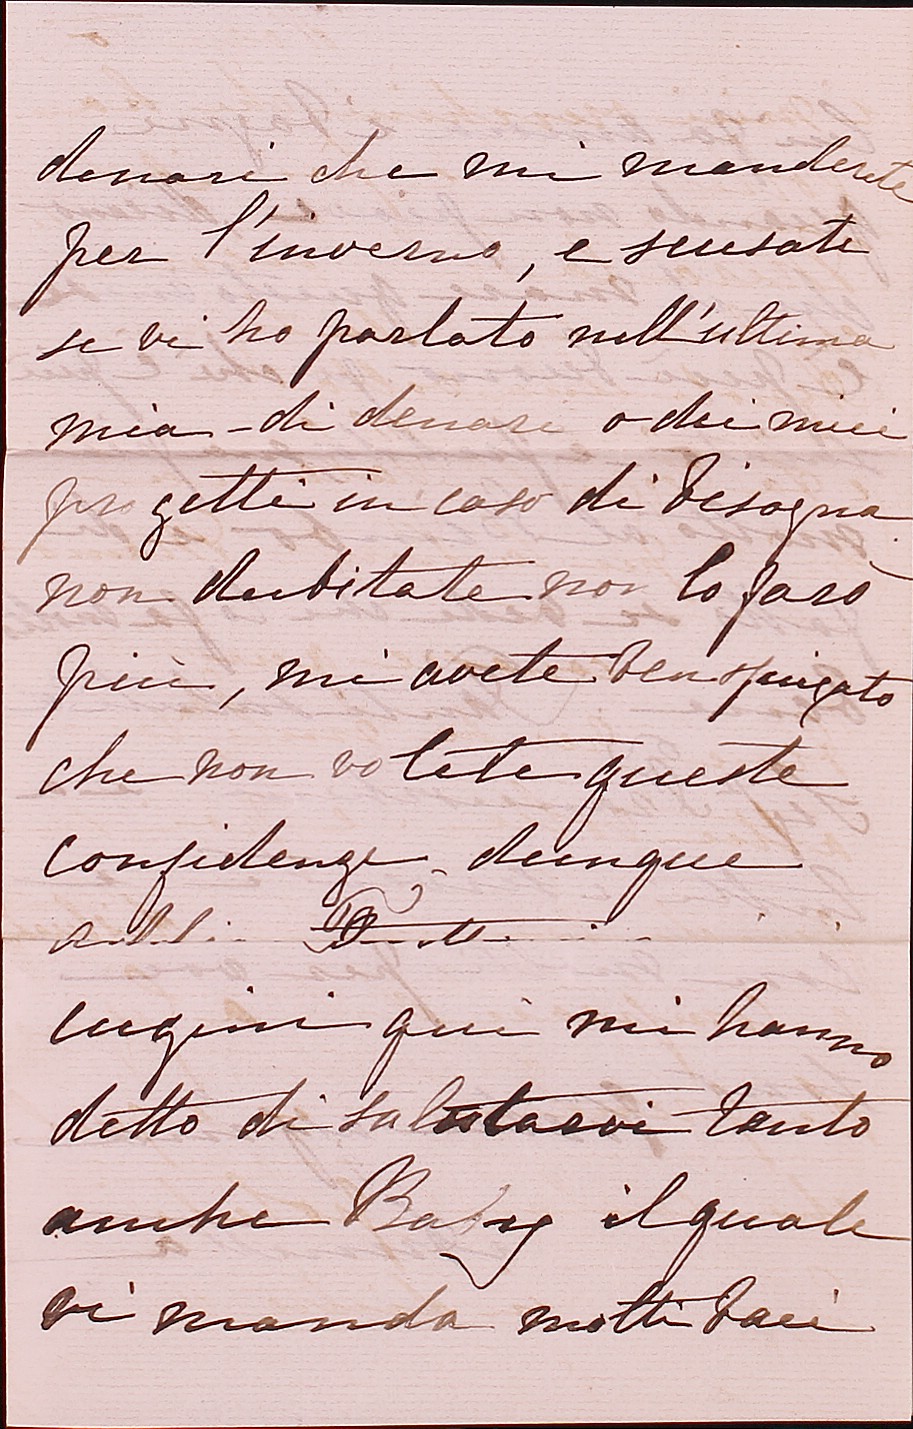 denari che mi manderete
per l'inverno, e scusate
se vi ho parlato nell'ultima
mia - di denari o dei miei
progetti in caso di bisogna
non dubitate non lo farò
più, mi avete ben spiegato
che non volete queste
confidenze dunque
addio Tutti i
cugini qui mi hanno
detto di salutarvi tanto
anche Baby il quale
vi manda molti baci